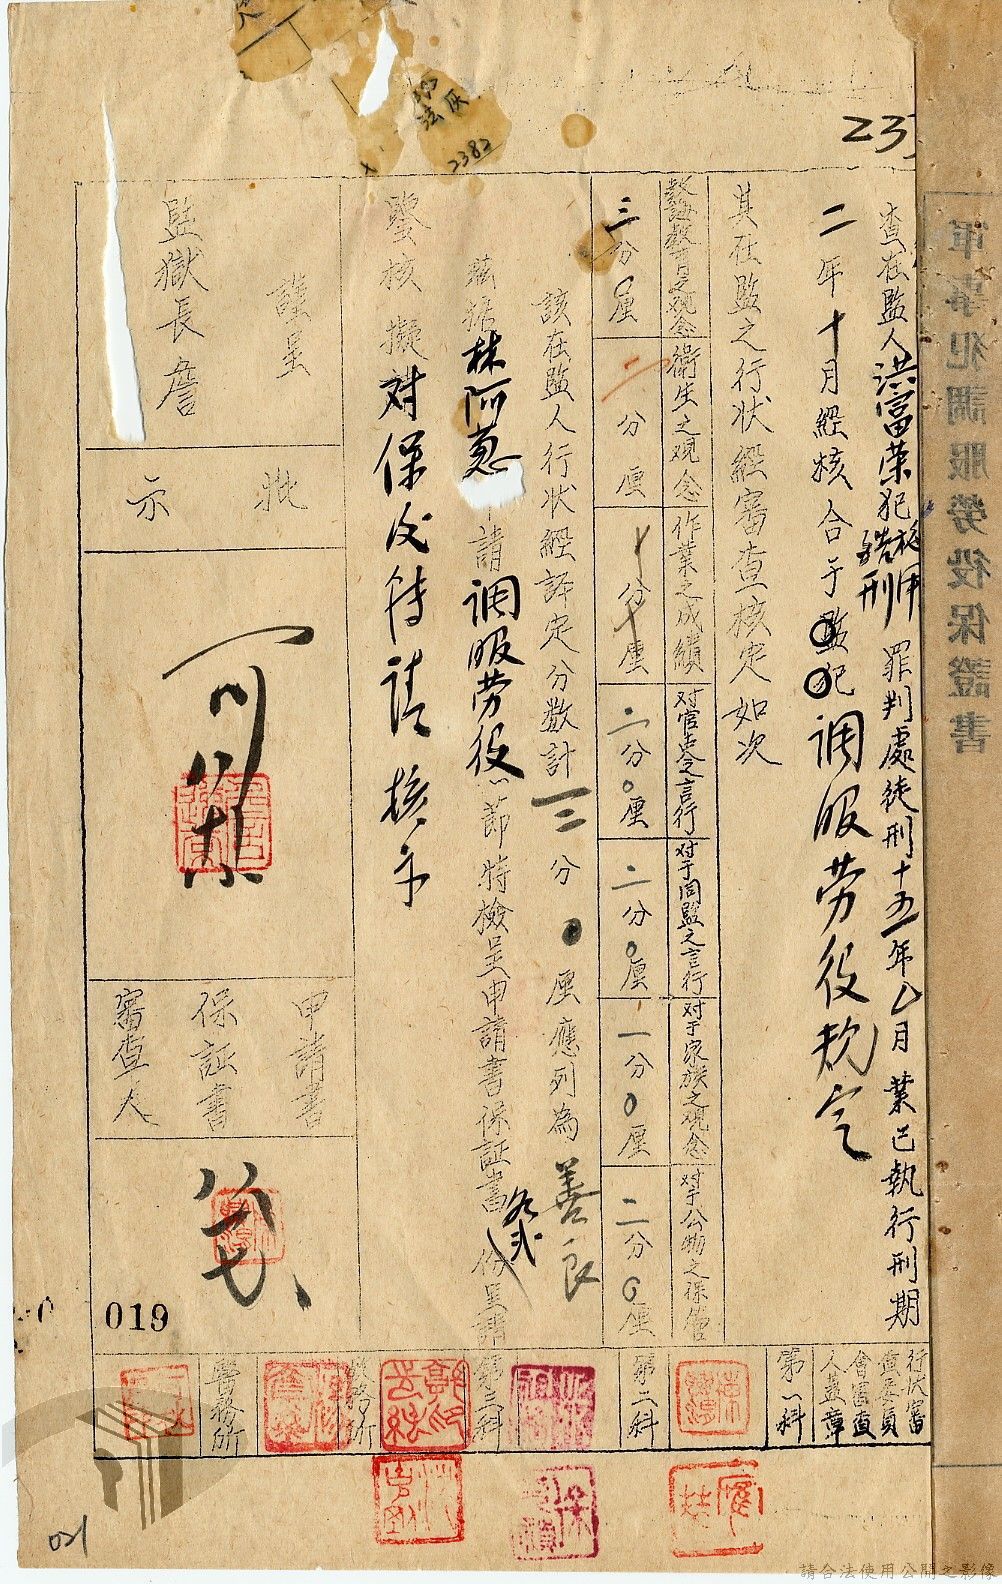 軍事犯調服勞役保證書
235
法
2382
查在監人洪富荣犯 罪判處徒刑十五年 月業已執行刑期
二年十月經核合于監犯调服劳役規定
其在監之行状經審查核定如次
教誨教育之观念 衛生之观念 作業之成績 对官吏之言行 对于同監之言行 对于家族之观念 对于公物之保管
三分0厘 二分 厘 分 厘 二分0厘 二分0厘 一分0厘 二分0厘
該在監人行状經評定分数計 三分0厘應列為善良
茲据林阿蔥 請调服劳役一節特檢呈申請書保証書各貳份呈請
鑒核擬对保後待請核示
謹呈
監獄長詹
批示
可
申請書
保証書
審查人
019
行状審
查委員
會審查
人蓋章
第一科
第二科
第三科
教務所
醫務所
021
請合法使用公開之影像